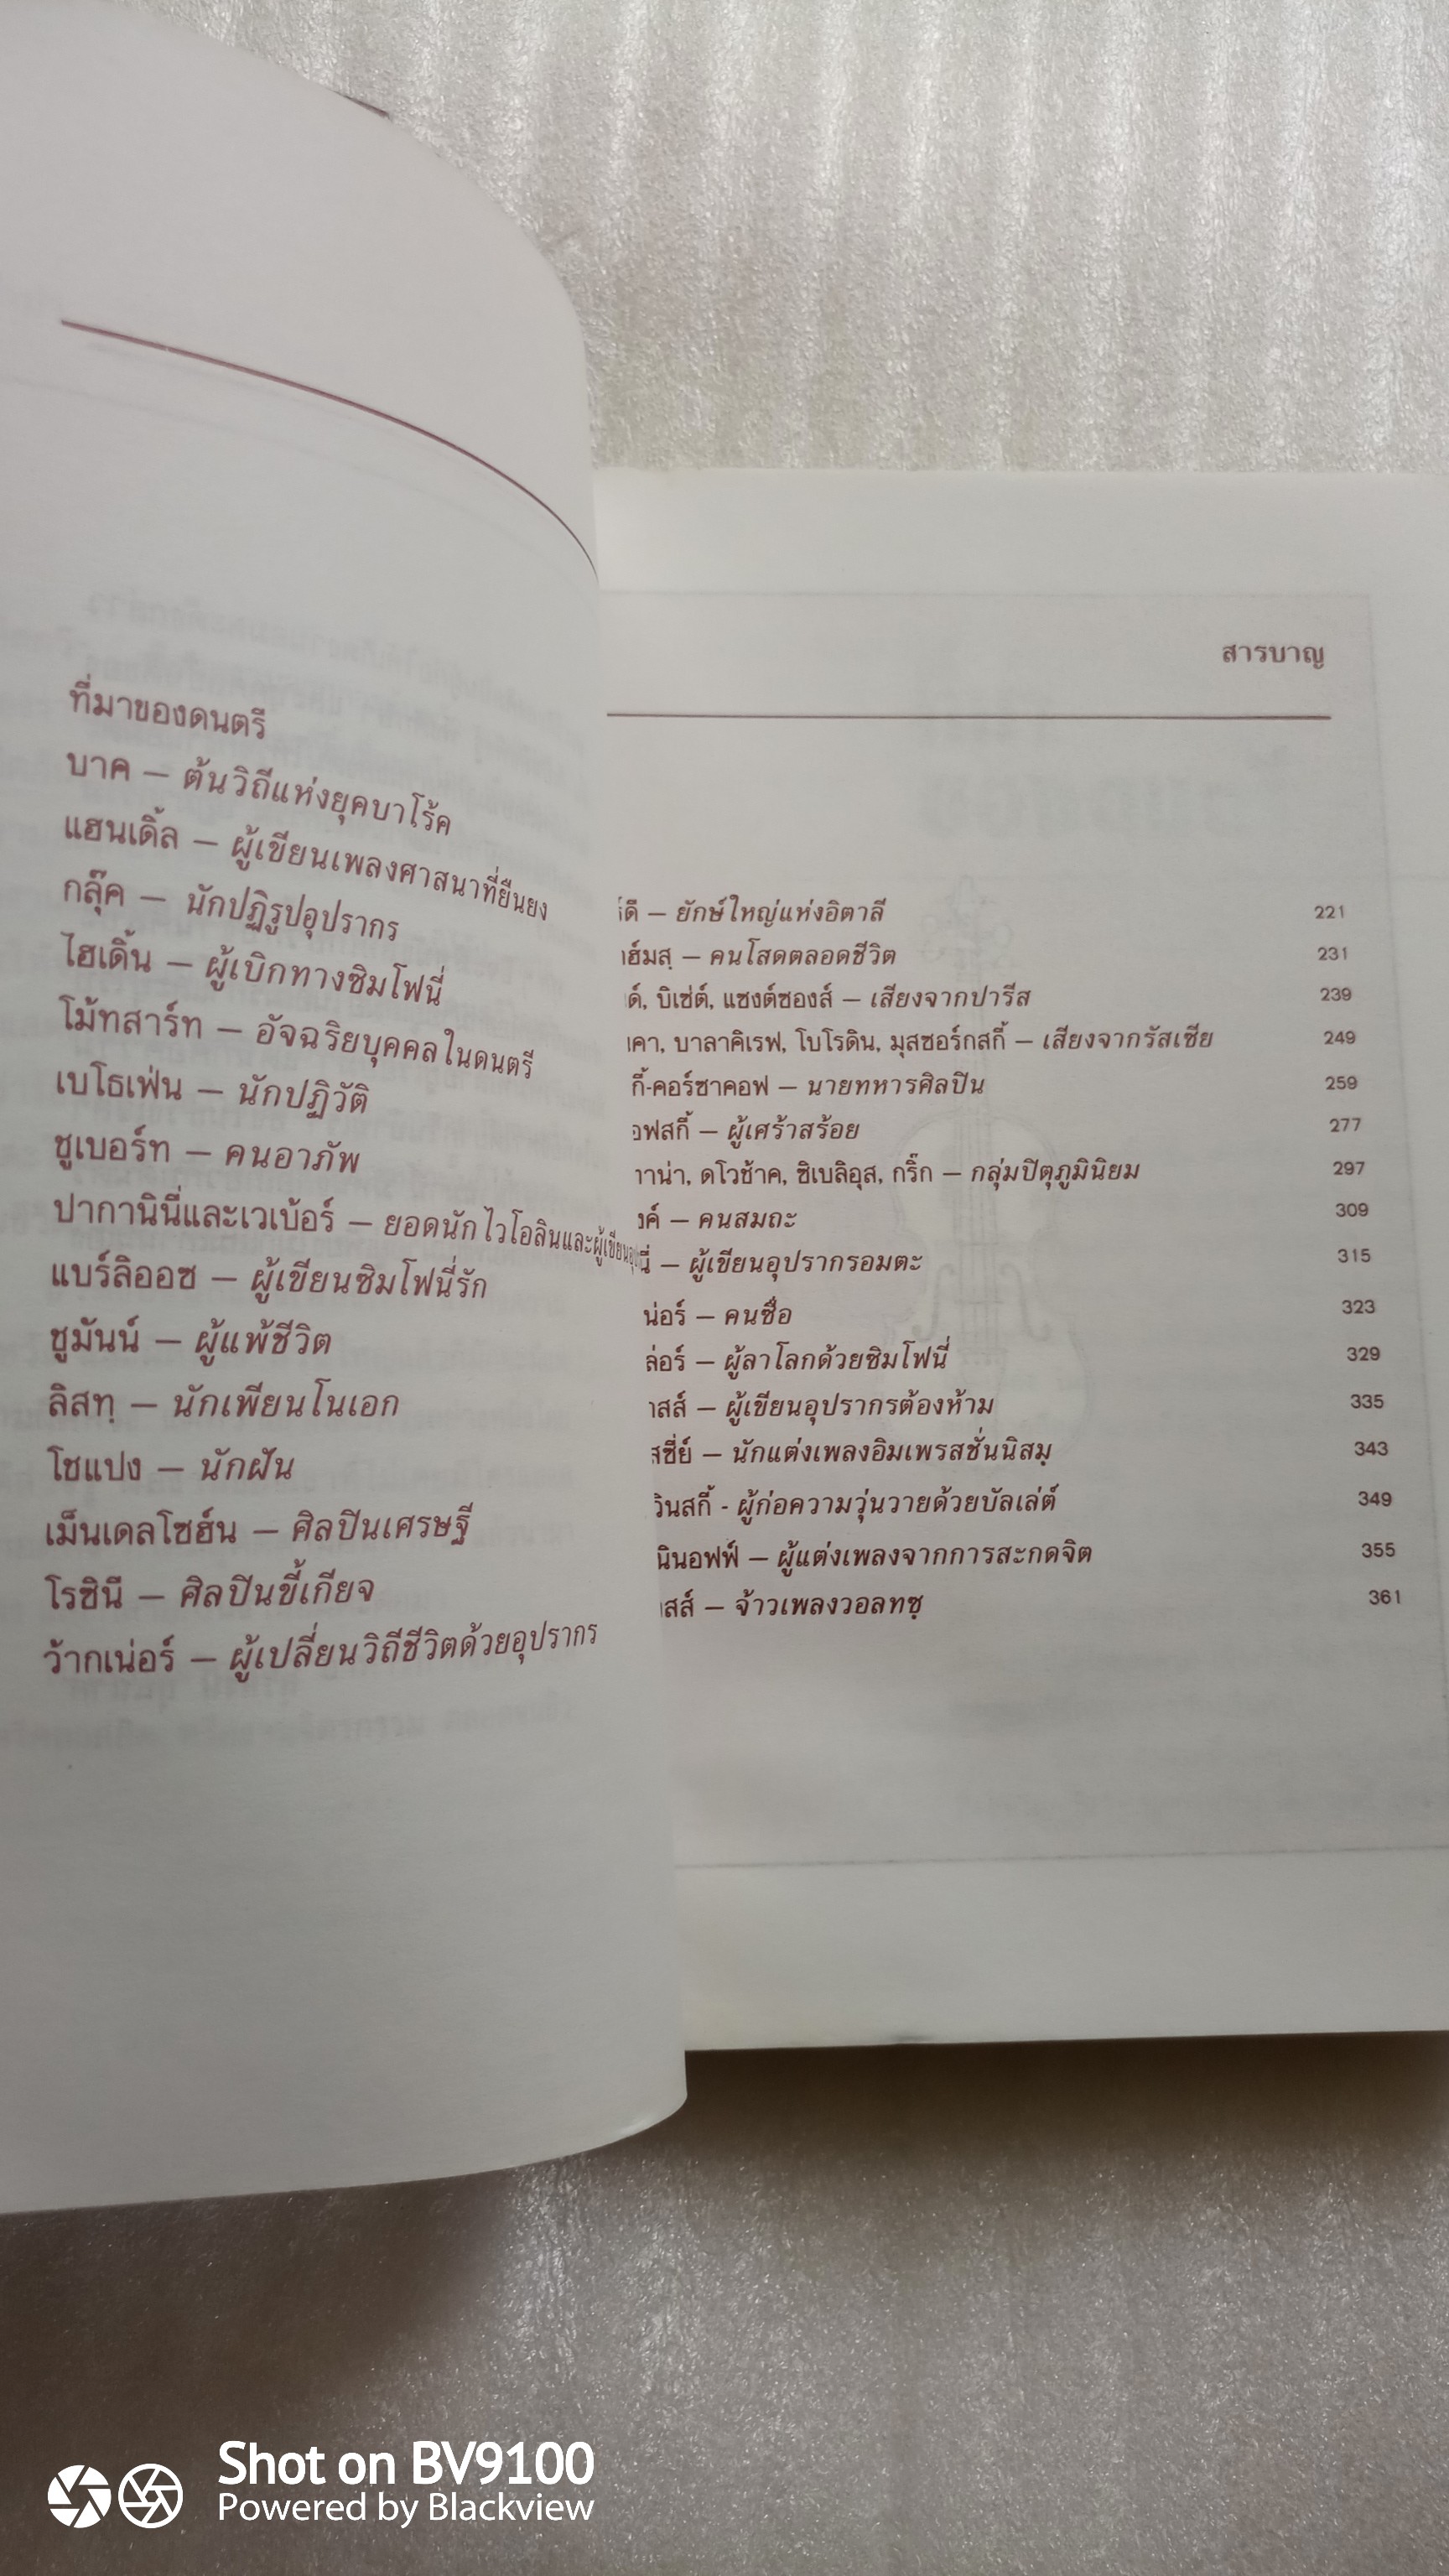 ที่มาของดนตรี
บาค — ต้นวิถีแห่งยุคบาโร้ค
แฮนเดิ้ล — ผู้เขียนเพลงศาสนาที่ยืนยง
กลุ๊ค — นักปฏิรูปอุปรากร
ไฮเดิ้น — ผู้เบิกทางซิมโฟนี่
โม้ทสาร์ท — อัจฉริยบุคคลในดนตรี
เบโธเฟ่น — นักปฏิวัติ
ชูเบอร์ท — คนอาภัพ
ปากานินี่และเวเบ้อร์ — ยอดนักไวโอลินและผู้เขียน
แบร์ลิออซ — ผู้เขียนซิมโฟนี่รัก
ชูมันน์ — ผู้แพ้ชีวิต
ลิสทฺ — นักเพียนโนเอก
โชแปง — นักฝัน
เม็นเดลโซฮ์น — ศิลปินเศรษฐี
โรซินี — ศิลปินขี้เกียจ
ว้ากเน่อร์ — ผู้เปลี่ยนวิถีชีวิตด้วยอุปรากร
สารบาญ
ดี — ยักษ์ใหญ่แห่งอิตาลี 221
าฮ์มสฺ — คนโสดตลอดชีวิต 231
ด์, บิเซ่ต์, แซงต์ซองส์ — เสียงจากปารีส 239
คา, บาลาคิเรฟ, โบโรดิน, มุสซอร์กสกี้ — เสียงจากรัสเซีย 249
กี้-คอร์ซาคอฟ — นายทหารศิลปิน 259
อฟสกี้ — ผู้เศร้าสร้อย 277
าน่า, ดโวช้าค, ซิเบลิอุส, กริ๊ก — กลุ่มปิตุภูมินิยม 297
งค์ — คนสมถะ 309
นี่ — ผู้เขียนอุปรากรอมตะ 315
น่อร์ — คนซื่อ 323
ล่อร์ — ผู้ลาโลกด้วยซิมโฟนี่ 329
าสส์ — ผู้เขียนอุปรากรต้องห้าม 335
สซี่ย์ — นักแต่งเพลงอิมเพรสชั่นนิสมฺ 343
วินสกี้ - ผู้ก่อความวุ่นวายด้วยบัลเล่ต์ 349
นินอฟฟ์ — ผู้แต่งเพลงจากการสะกดจิต 355
าสส์ — จ้าวเพลงวอลทซฺ 361
Shot on BV9100
Powered by Blackview